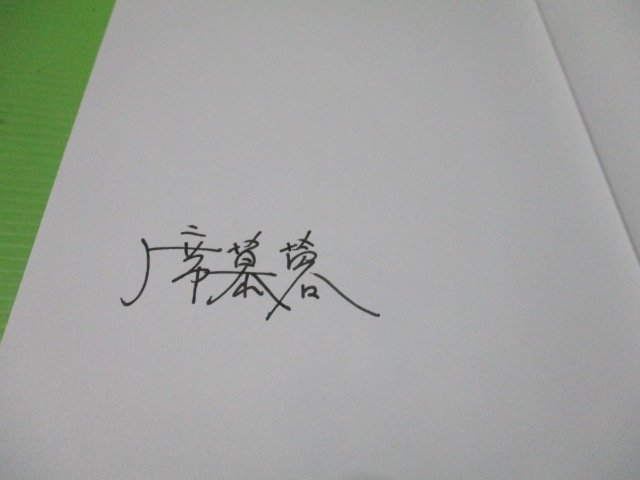 席慕蓉